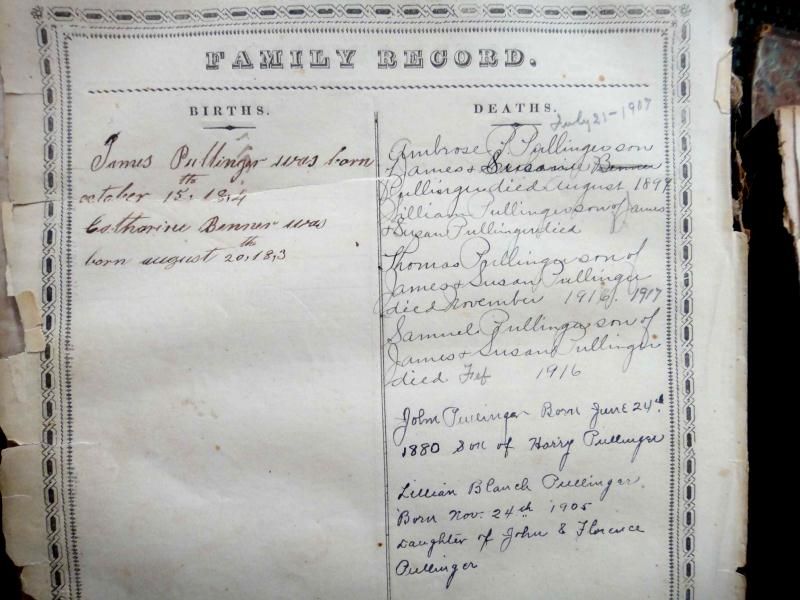 FAMILY RECORD.
BIRTHS.
James Pullinger was born
october 15th, 18,4
Catharine Benner was
born august 20th, 18,3
DEATHS.
July 21-1907
Ambrose P. Pullinger son
James & Susan Benner
Pullinger died August 1897
William Pullinger son of James
& Susan Pullinger died
Thomas Pullinger son of
James & Susan Pullinger
died November 1916. 1917
Samuel Pullinger son of
James & Susan Pullinger
died Fef 1916
John Pullinger Born June 24th
1880 Son of Harry Pullinger
Lillian Blanch Pullinger.
Born Nov. 24th 1905
Daughter of John & Florence
Pullinger